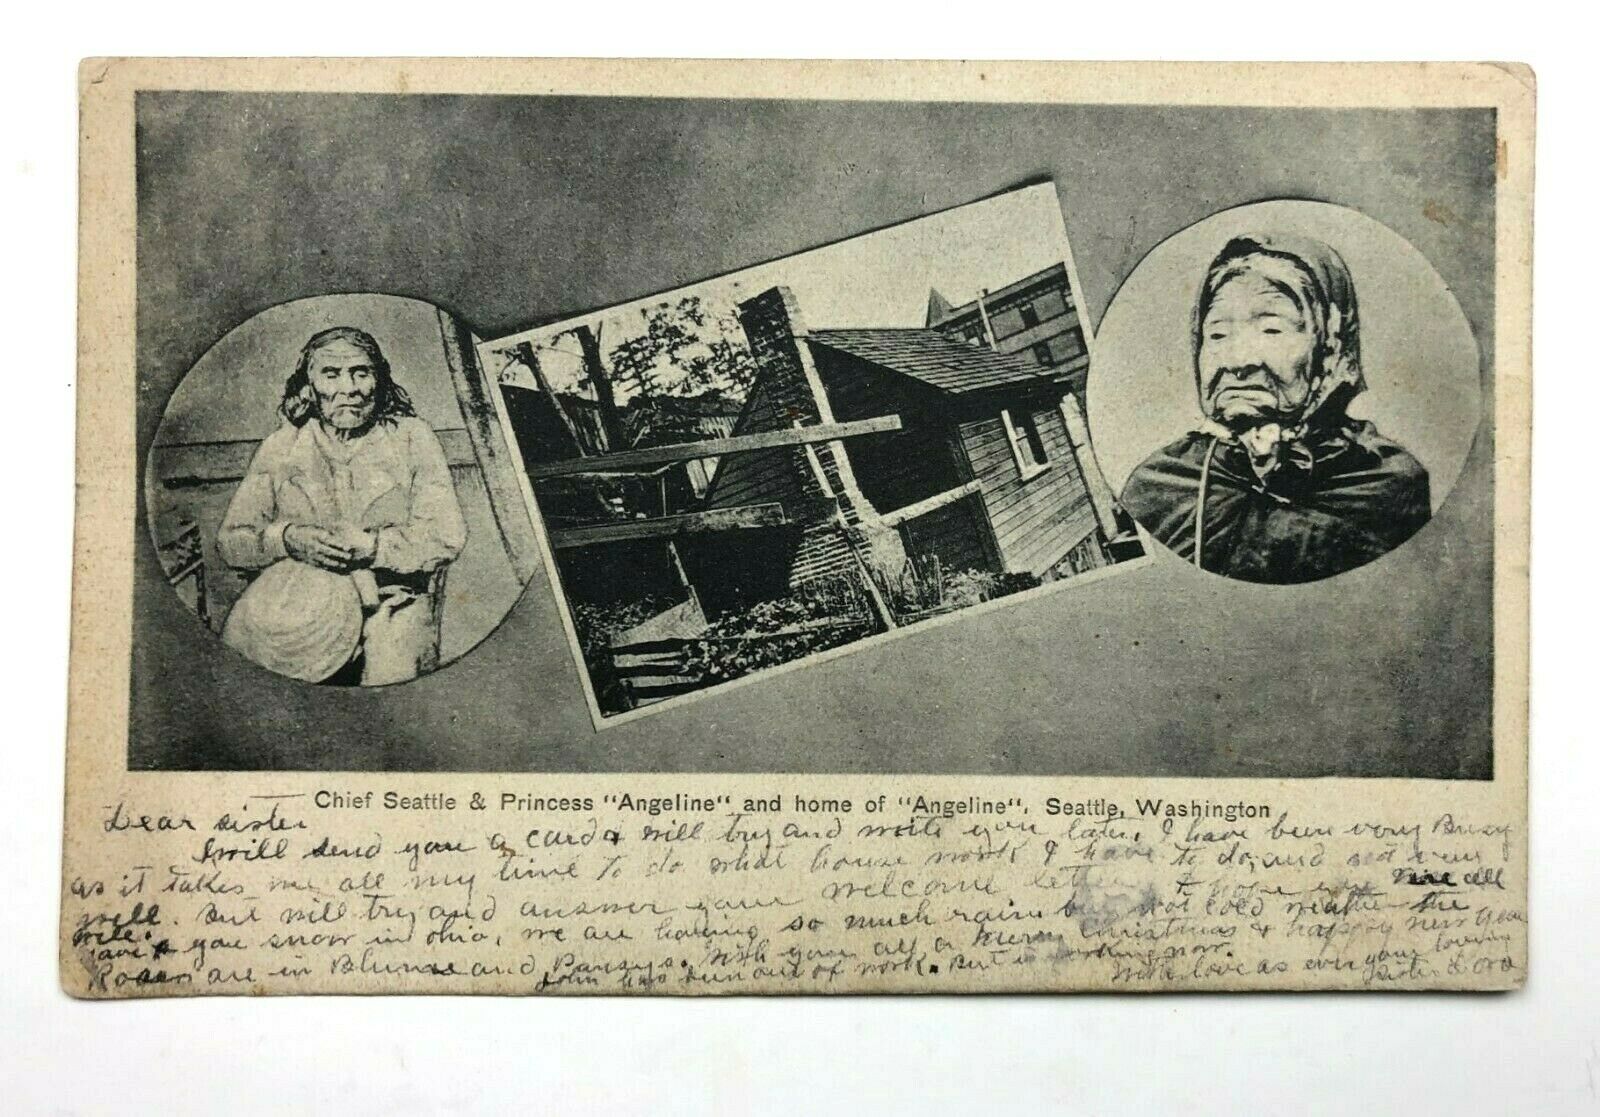 Chief Seattle & Princess "Angeline" and home of "Angeline", Seattle, Washington
Dear sister
I will send you a card & will try and write you later, I have been very Buisy
as it takes me all my time to do what house work I have to do, and not very
well. But will try and answer your welcome letter, I hope you are all
well. you snow in ohio, we are having so much rain but not cold weather the
Roses are in Blume and Pansys. Wish you all a Merry Christmas & happy new year
John has bin out of work. But is working now
With love as ever your loveing
sister Dora